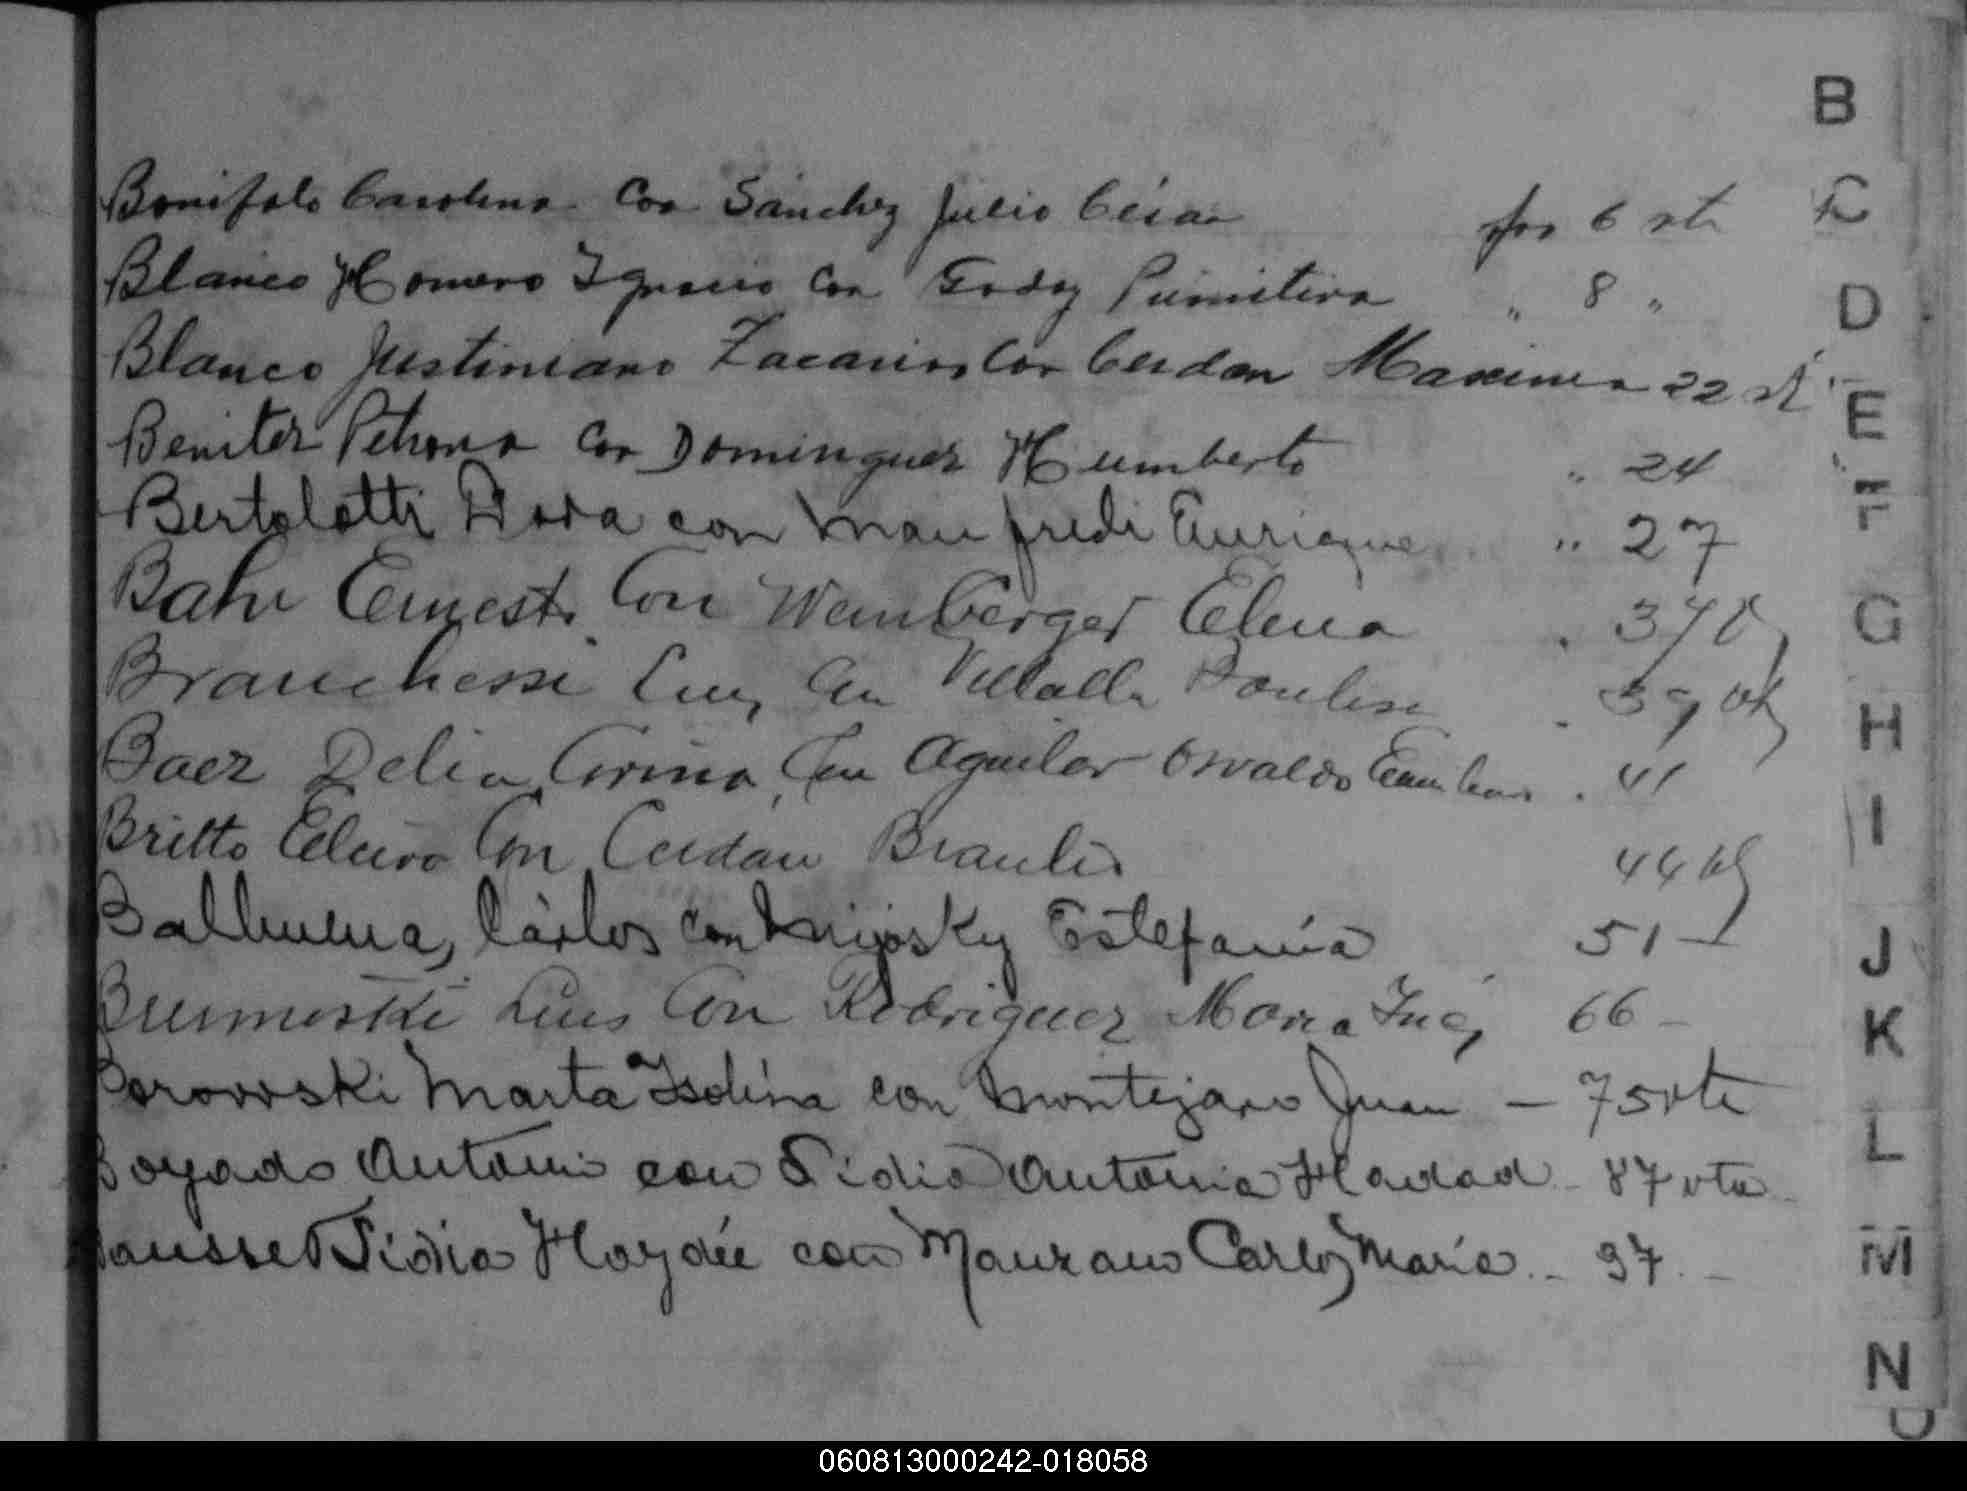 Bonifalo Carolina con Sánchez Julio César fos 6 vta
Blanco Homero Ignacio con Godoy Primitiva " 8 "
Blanco Justiniano Zacarias con Cerdan Maxima 22 vt
Benitez Petrona con Dominguez Humberto " 24
Bertolotti Dora con Manfredi Enrique " 27
Bahr Ernesto con Weinberger Elena 37
Branchessi Luis con Villalla 39 vta
Baez Delia Corina con Aguilar Osvaldo 41
Britto Elvira con Cerdan Braulio 44 vta
Balbuena, Cárlos con Estefanía 51 -
Luis con Rodriguez Maria Inés 66 -
Borowski Marta Isolina con Montejano Juan - 75 vta
Boyado Antonio con Lidia Antonia Hadad - 87 vta
Bausse Lidia Haydée con Manzano Carlos María - 97 -
B
C
D
E
F
G
H
I
J
K
L
M
N
060813000242-018058